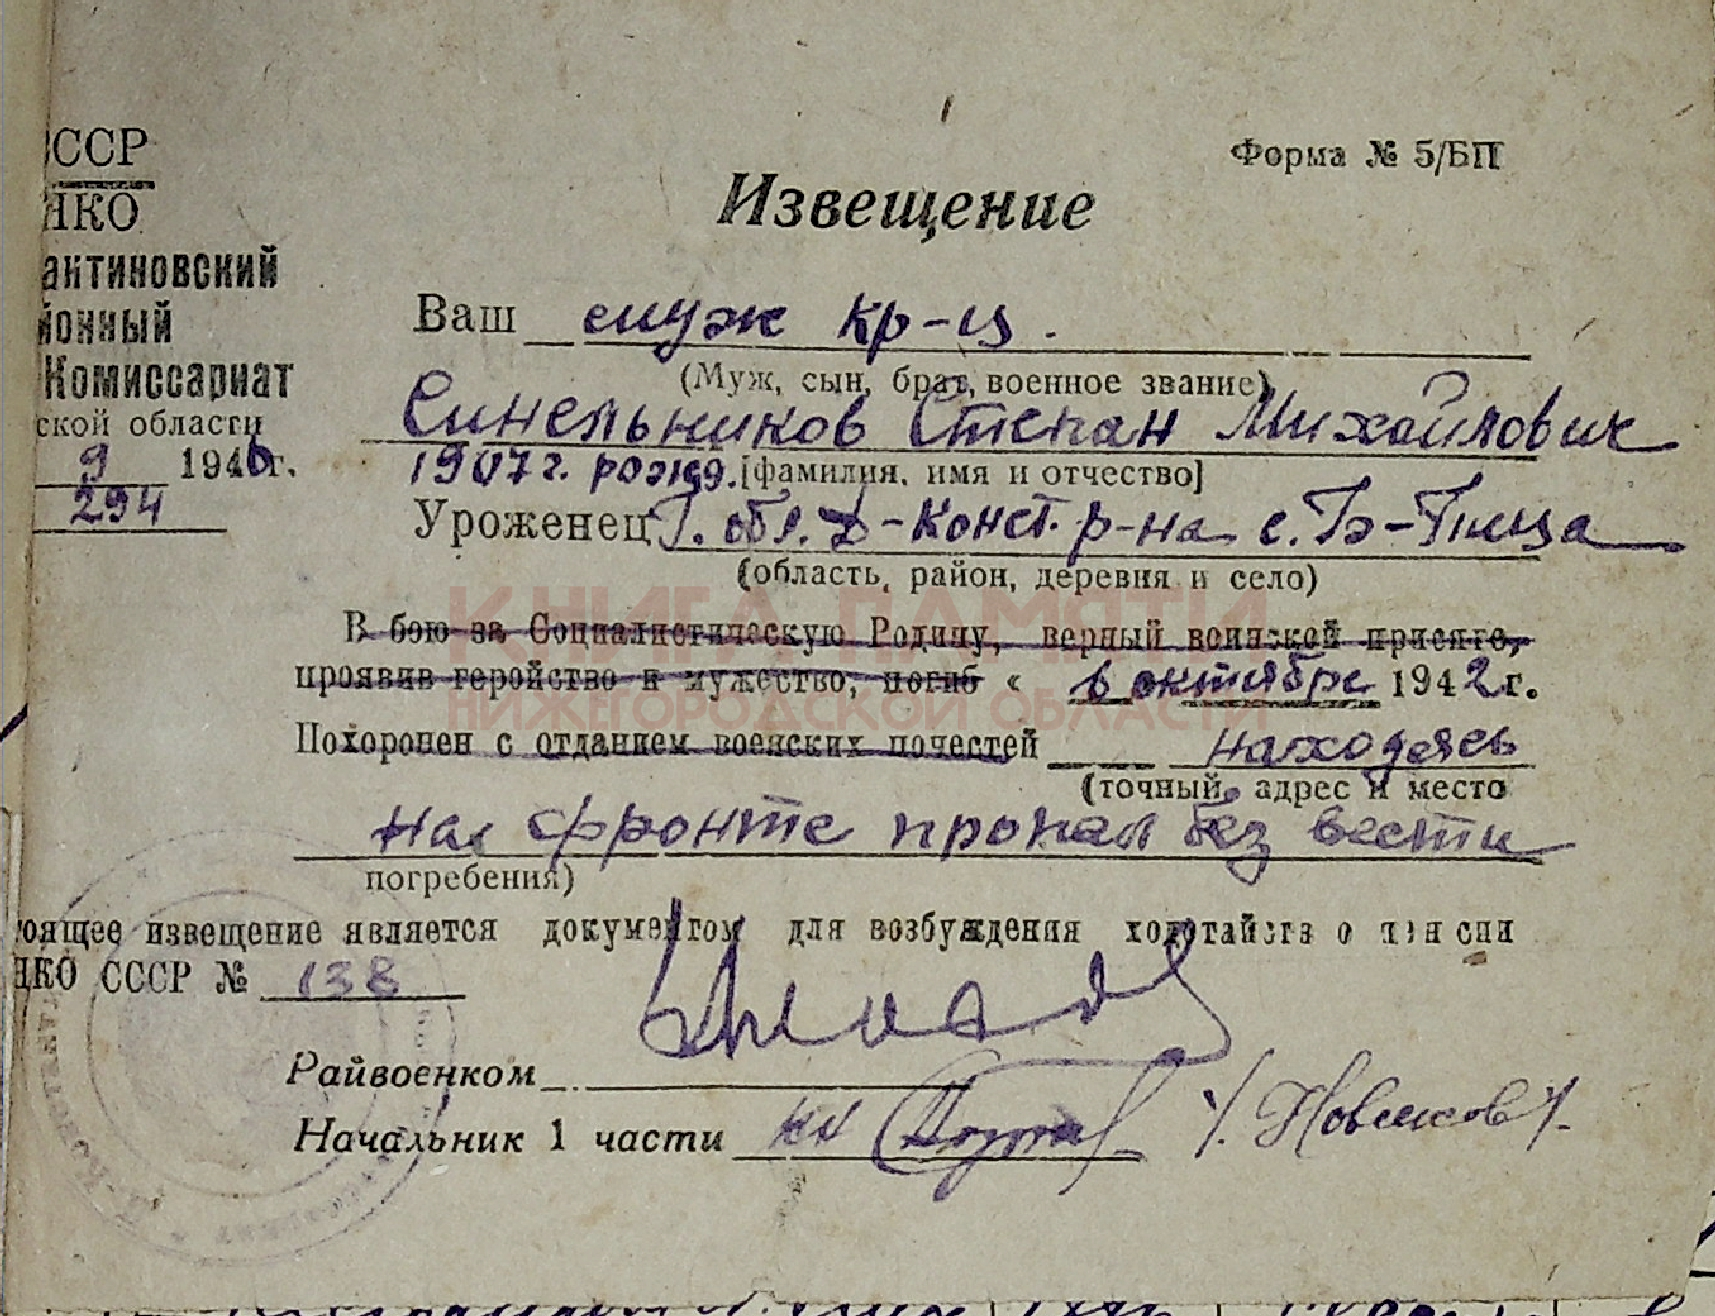 СССР
НКО
Форма № 5/БП
Извещение
актиновский
йонный
Комиссариат
ской области
9 1946г.
294
Ваш муж кр-ц.
(Муж, сын, брат, военное звание)
Синельников Степан Михайлович
1907 г. рожд. [фамилия, имя и отчество]
Уроженец Г. обл. Д-Конст. р-на с. Б-Пица
(область, район, деревня и село)
В бою за Социалистическую Родину, верный воинской присяге,
проявив геройство и мужество, погиб « 6 октября 1942 г.
Похоронен с отданием воинских почестей находясь
(точный адрес и место
на фронте пропал без вести
погребения)
оящее извещение является документом для возбуждения ходатайства о пенсии
НКО СССР № 138
Райвоенком
Начальник 1 части /. Новиков /.
КНИГА ПАМЯТИ
НИЖЕГОРОДСКОЙ ОБЛАСТИ